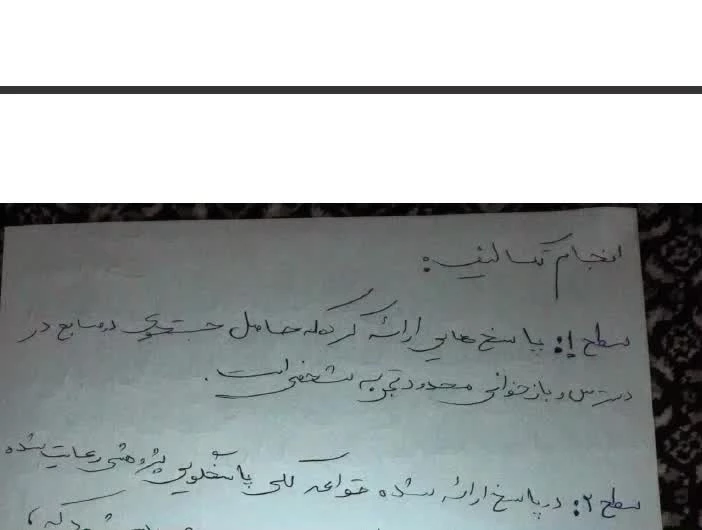 انجام تکالیف:
سطح ۱: پاسخ هایی ارائه کرده که حاصل جستجوی در منابع در
دسترس و بازخوانی محدود تجربه شخصی است.
سطح ۲: در پاسخ ارائه شده قواعد کلی پاسخگویی پژوهشی رعایت شده